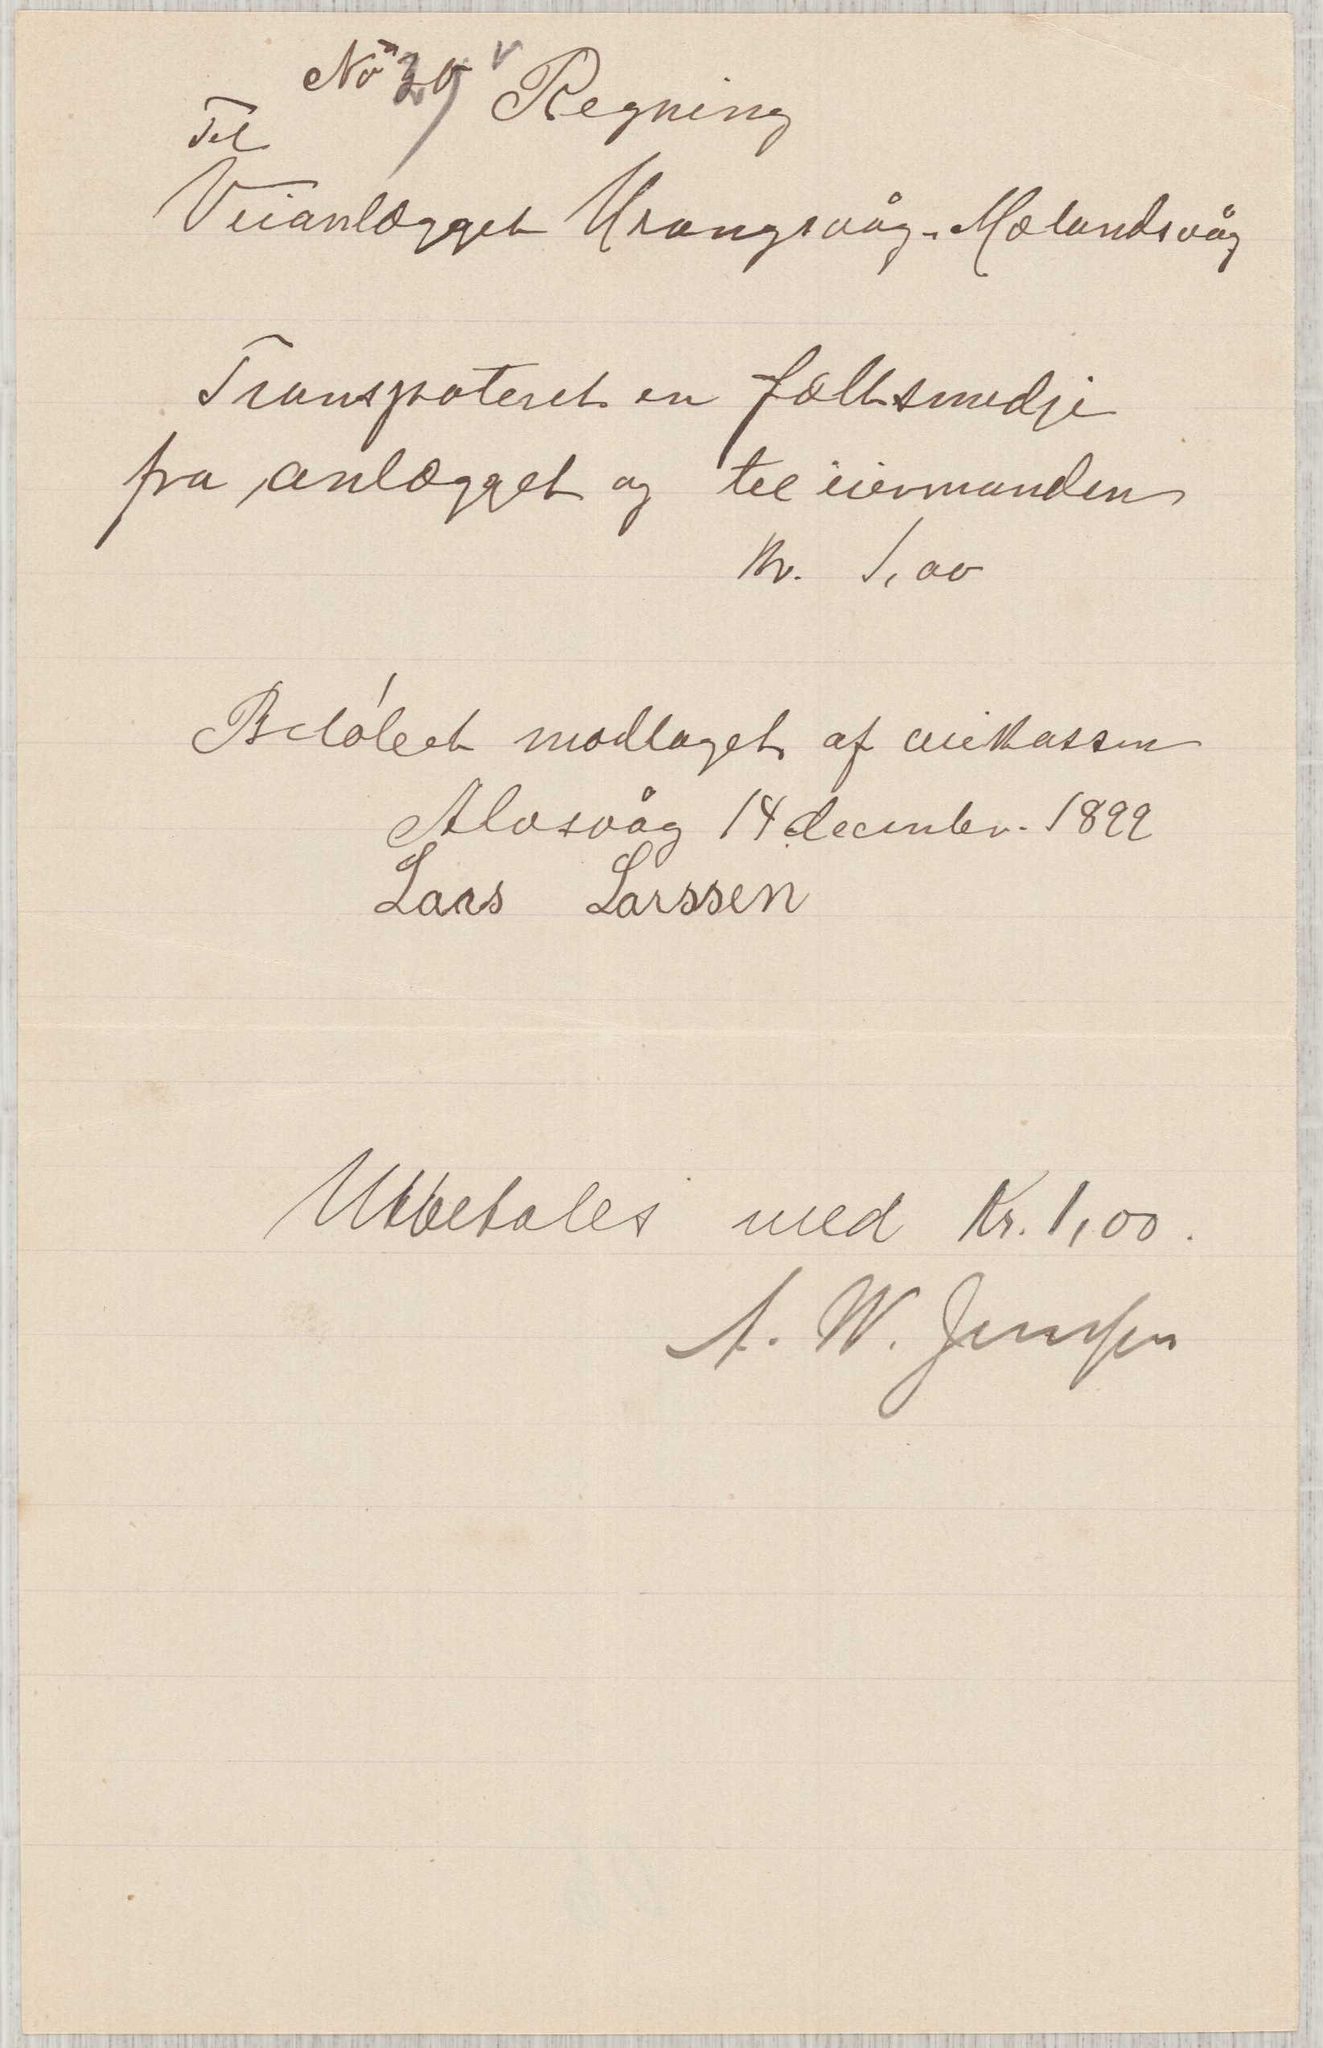 No Regning
Til
Veianlægget Urangsvåg-Mælandsvåg
Transpoteret en fæltsmedje
fra anlægget og til eiermanden
Kr. 1,00
Beløbet modtaget af veikassen
Alvsvåg 14 december. 1899
Lars Larssen
Utbetales med Kr. 1,00.
A. W. Jenssen